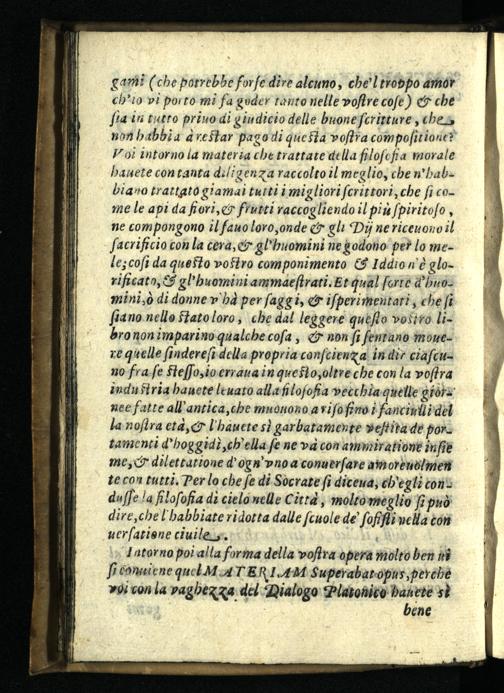 gami (che potrebbe forse dire alcuno, che'l troppo amor
ch'io vi porto mi fa goder tanto nelle vostre cose) & che
sia in tutto priuo di giudicio delle buone scritture, che
non habbia à restar pago di questa vostra compositione?
Voi intorno la materia che trattate della filosofia morale
hauete con tanta diligenza raccolto il meglio, che n'hab-
biano trattato giamai tutti i migliori scrittori, che si co-
me le api da fiori, & frutti raccogliendo il più spiritoso,
ne compongono il fauo loro, onde & gli Dij ne riceuono il
sacrificio con la cera, & gl'huomini ne godono per lo me-
le; cosi da questo vostro componimento & Iddio n'è glo-
rificato, & gl'huomini ammaestrati. Et qual sorte d'huo-
mini, ò di donne v'hà per saggi, & isperimentati, che si
siano nello stato loro, che dal leggere questo vostro li-
bro non imparino qualche cosa, & non si sentano moue-
re quelle sinderesi della propria conscienza in dir ciascu-
no fra se stesso, io erraua in questo, oltre che con la vostra
industria hauete leuato alla filosofia vecchia quelle gior-
nee fatte all'antica, che muouono a riso fino i fanciulli del
la nostra età, & l'hauete sì garbatamente vestita de por-
tamenti d'hoggidì, ch'ella se ne và con ammiratione insie
me, & dilettatione d'ogn'vno a conuersare amoreuolmen
te con tutti. Per lo che se di Socrate si diceua, ch'egli con-
dusse la filosofia di cielo nelle Città, molto meglio si può
dire, che l'habbiate ridotta dalle scuole de' sofisti nella con
uersatione ciuile.
Intorno poi alla forma della vostra opera molto ben ui
si conuiene quel MATERIAM Superabat opus, perche
voi con la vaghezza del Dialogo Platonico hauete sì
bene